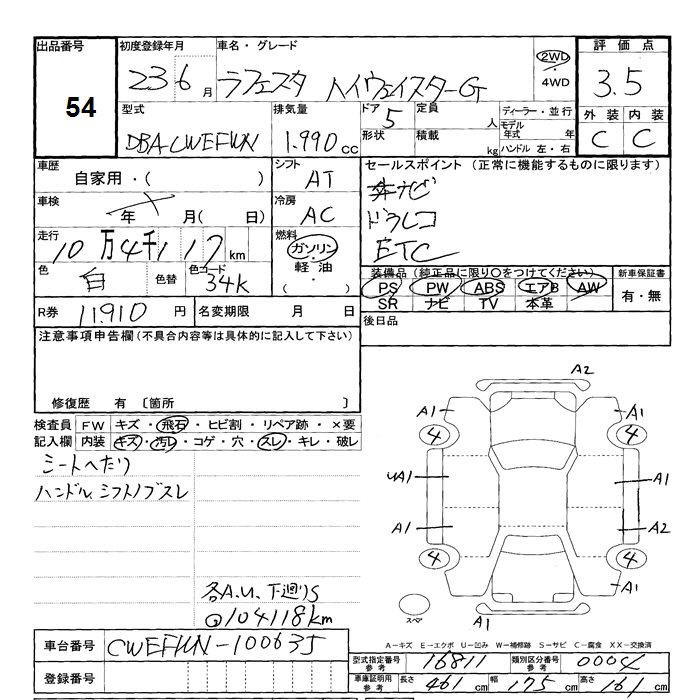 出品番号
54
初度登録年月
23 6 月
車名・グレード
ラフェスタ ハイウェイスターG
2WD
4WD
評価点
3.5
外装 内装
C C
型式
DBA-CWEFWN
排気量
1.990 cc
ドア 5
形状
定員 人
積載 kg
ディーラー・並行
モデル年式 年
ハンドル 左・右
車歴
自家用・( )
シフト
AT
セールスポイント (正常に機能するものに限ります)
ナビ
ドラレコ
ETC
車検
年 月( 日)
冷房
AC
走行
10万4千117km
燃料
ガソリン
軽油
( )
色
白
色替
色コード
34K
装備品 (純正品に限り○をつけてください)
PS PW ABS エアB AW
SR ナビ TV 本革
新車保証書
有・無
R券 11.910 円
名変期限 月 日
後日品
注意事項申告欄(不具合内容等は具体的に記入して下さい)
修復歴 有 〔箇所 〕
検査員記入欄
FW キズ・飛石・ヒビ割・リペア跡・×要
内装 キズ・汚レ・コゲ・穴・スレ・キレ・破レ
シートへたり
ハンドル、シフトノブスレ
各A.U、下廻りS
104118km
A2
A1 A1
4 4
A1
A1
A1 A2
4 4
A1
A1
スペア
A-キズ E-エクボ U-凹み W-補修跡 S-サビ C-腐食 XX-交換済
車台番号 CWEFWN-100635
登録番号
型式指定番号 参考 16811
類別区分番号 参考 0004
車庫証明用 参考 長さ 461 cm 幅 175 cm 高さ 161 cm